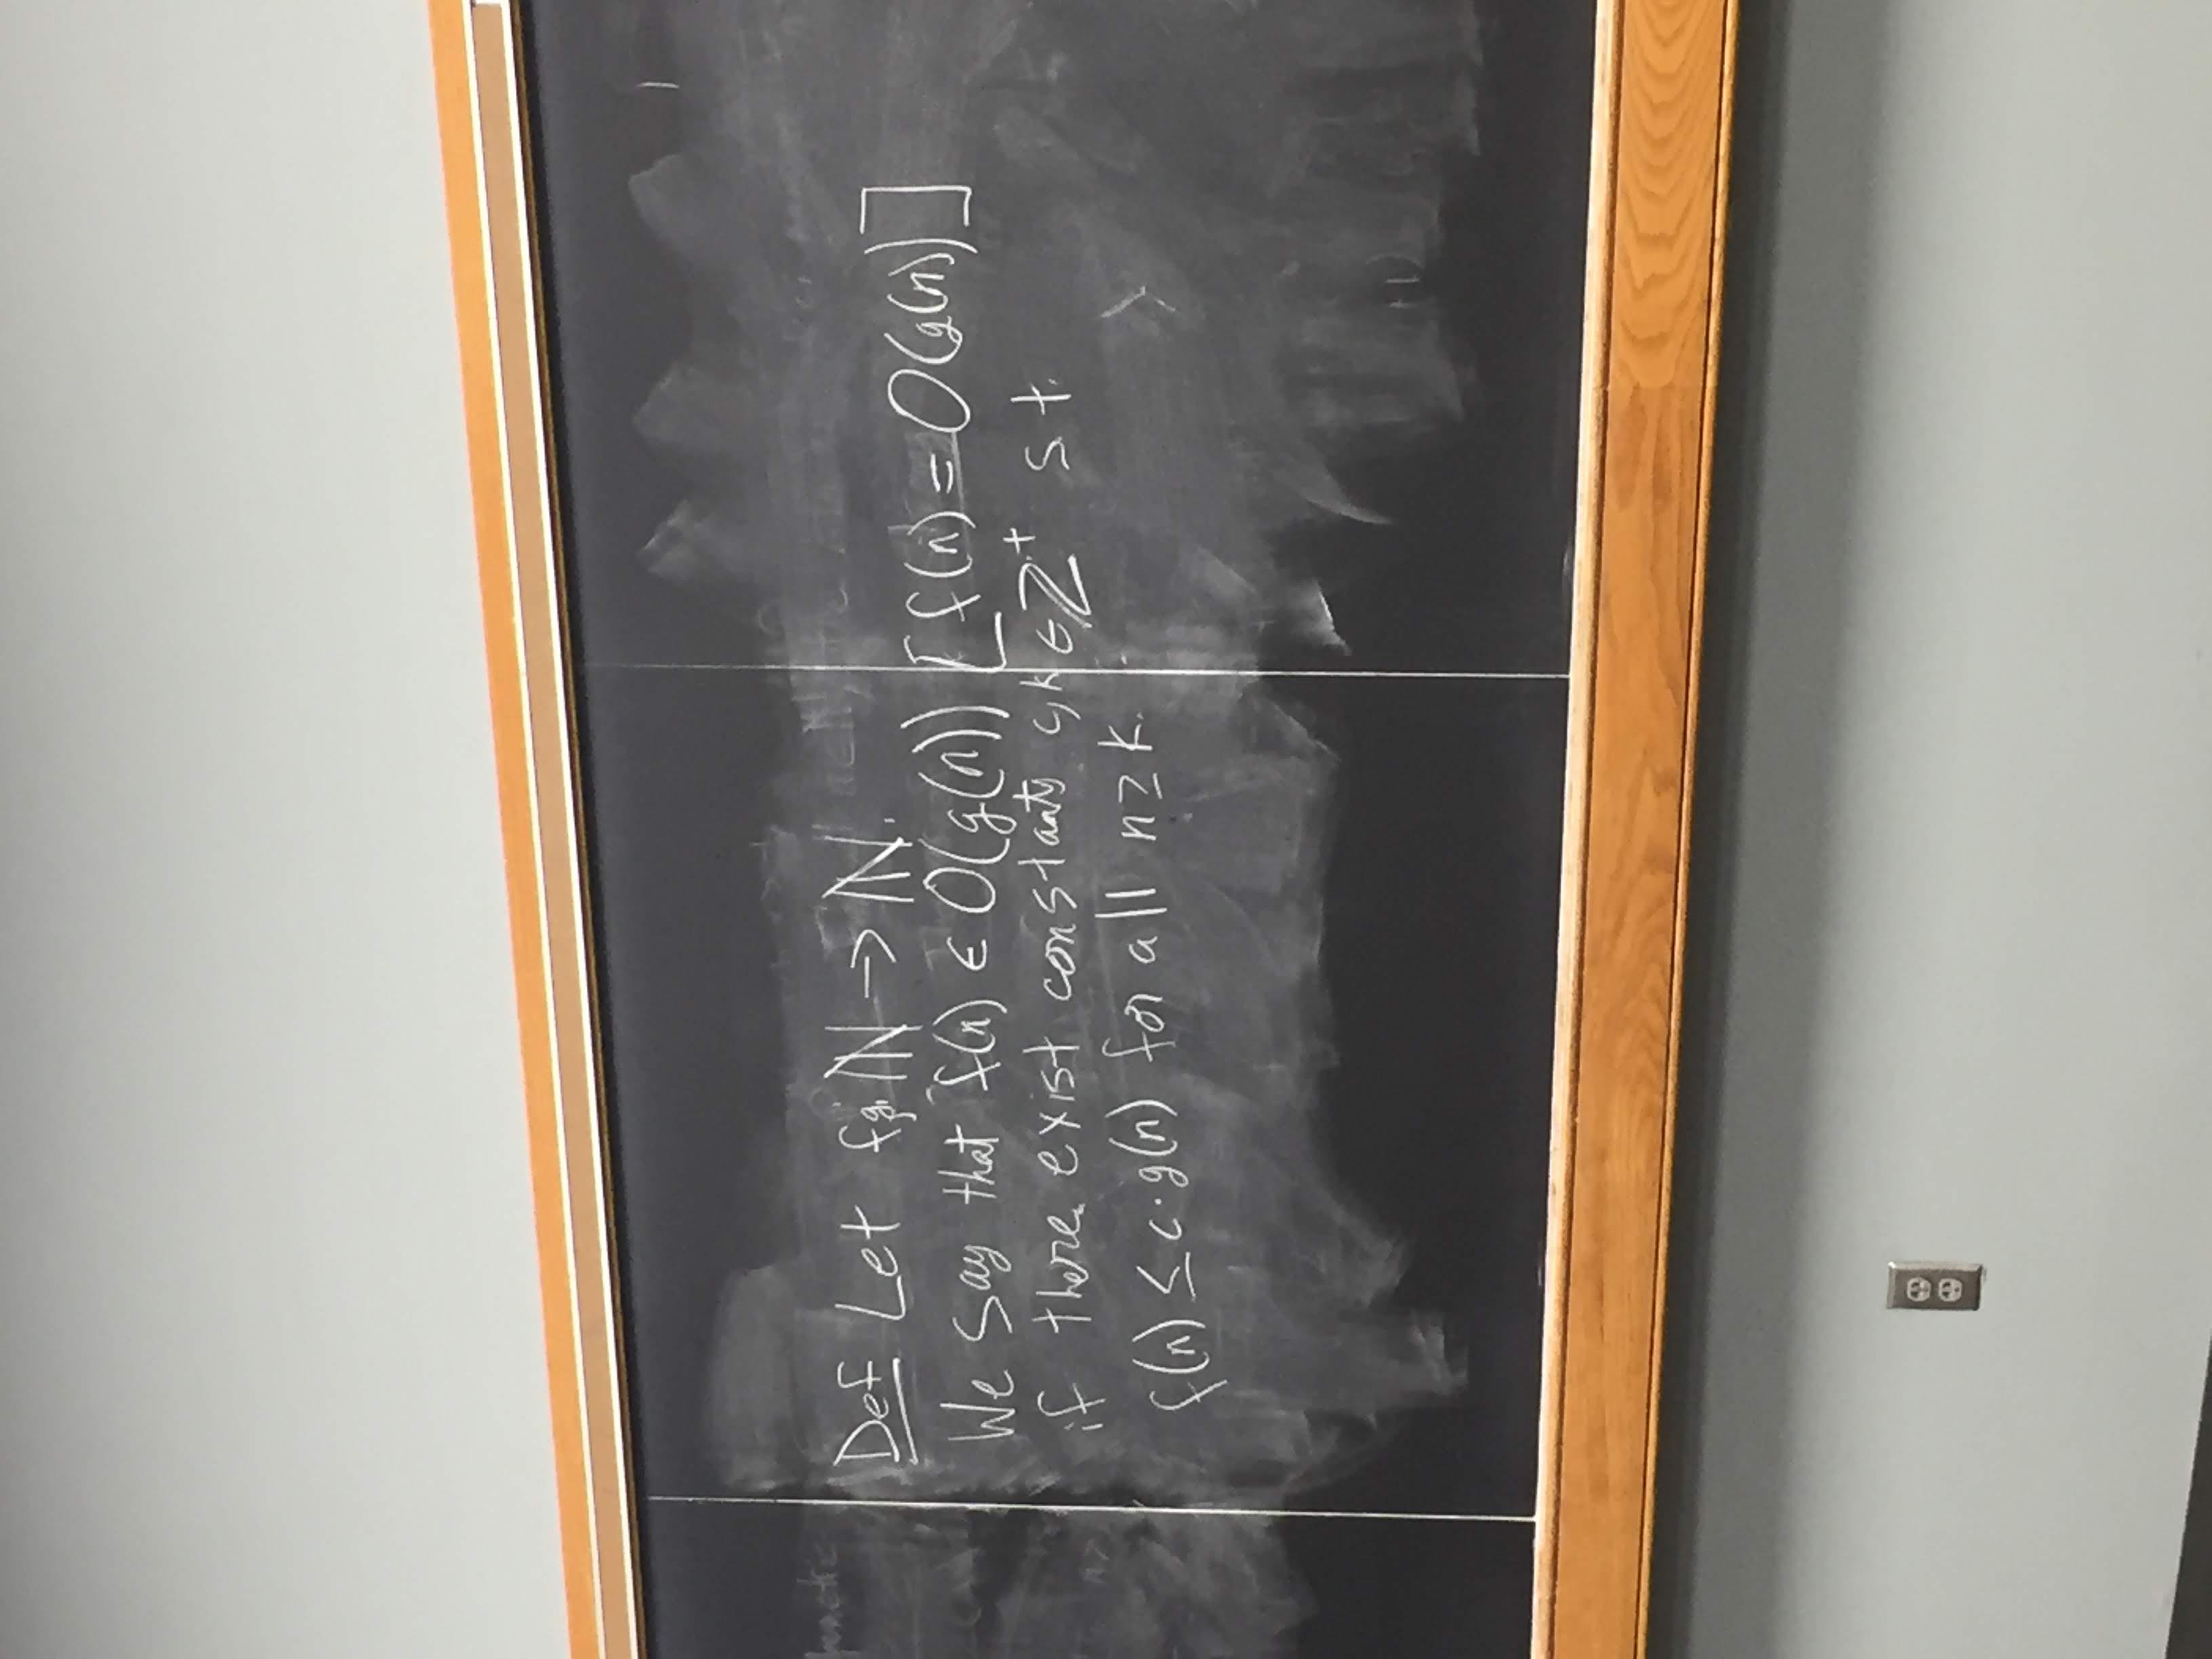 Def Let f,g: ℕ → ℕ.
We say that f(n) ∈ O(g(n)) [f(n) = O(g(n))]
if there exist constants c,k ∈ ℤ⁺ s.t.
f(n) ≤ c·g(n) for all n ≥ k.